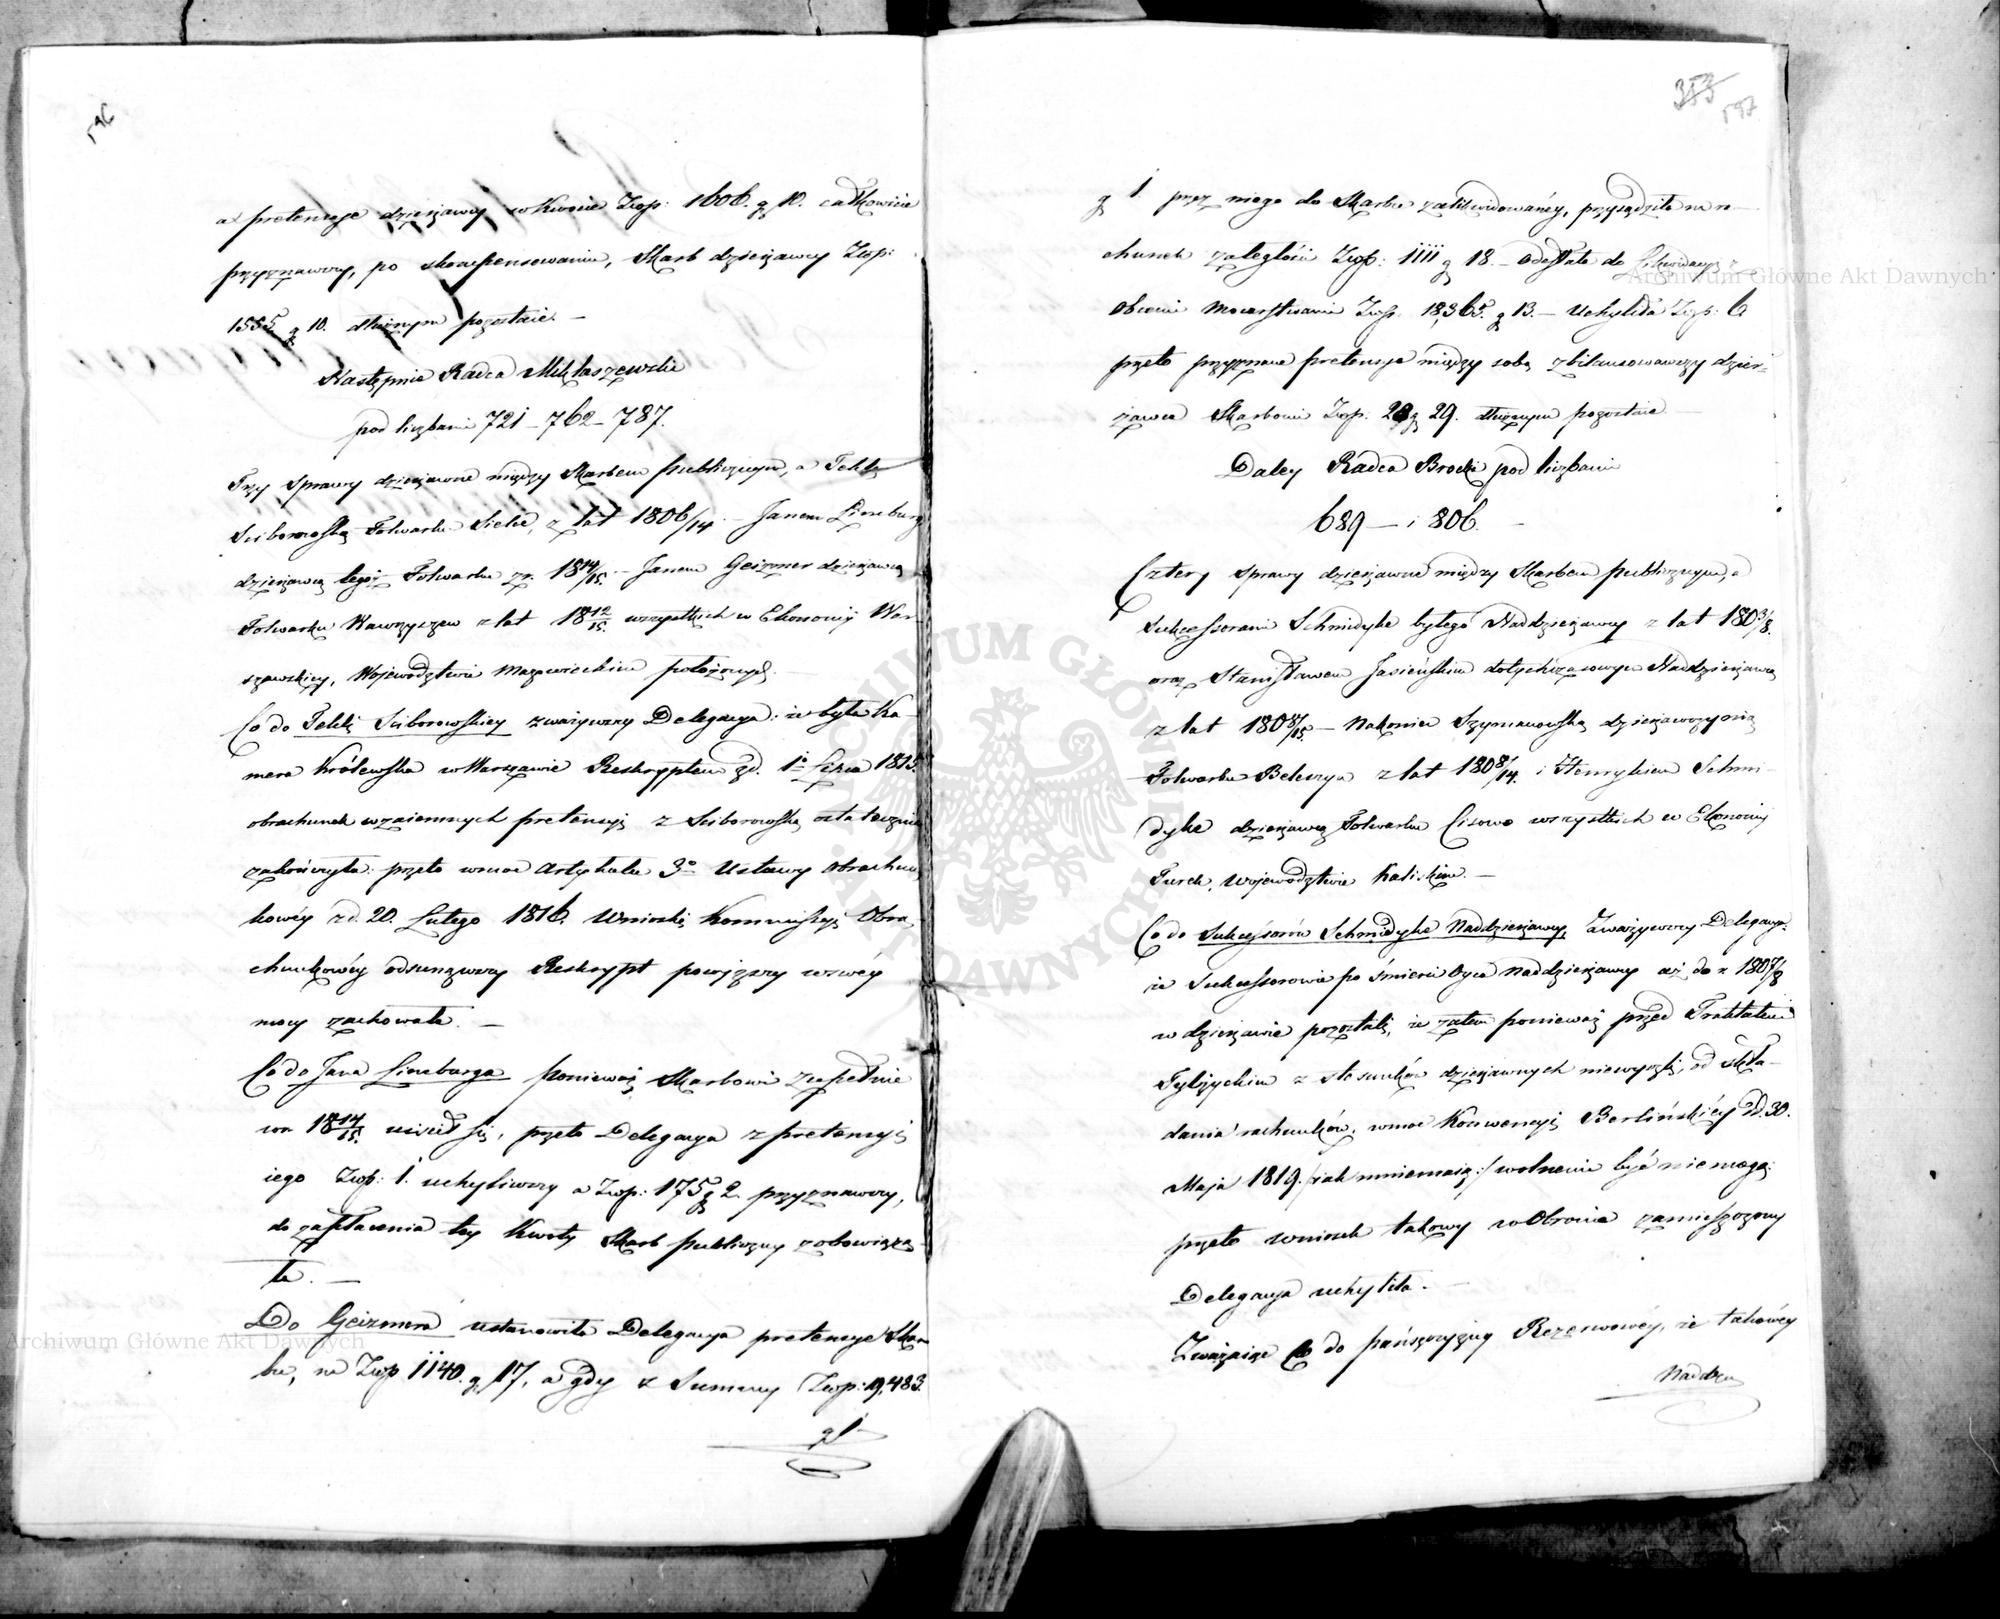 596
a pretensye dzierżawcy w kwocie Złop: 1606. g 10. całkowicie
przyznawszy, po skompensowaniu, Skarb dzierżawcy Złop:
1555 g 10. dłużnym pozostaie. —
Następnie Radca Miklaszewski
pod liczbami 721 – 762 – 787.
Trzy sprawy dzierżawne między Skarbem publicznym, a Teklą
Sciborowską Folwarku Sielce, z lat 1806/14. — Janem Lineburg
dzierżawcą tegoż Folwarku z r. 1814/15. — Janem Geizmer dzierżawcą
Folwarku Wawrzyszew z lat 1812/15. wszystkich w Ekonomij War
szawskiey, Województwie Mazowieckim położonych. —
Co do Tekli Sciborowskiey zważywszy Delegacya: że była Ka-
mera Królewska w Warszawie Reskryptem z d. 1o Lipca 1815.
obrachunek wzaiemnych pretensyi z Sciborowską ostatecznie
zakończyła: przeto w moc Artykułu 3o Ustawy Obrachun
kowéy z d. 20. Lutego 1816. Wnioski Kommissyi Obra-
chunkowéy odsunąwszy Reskrypt powyższy w swéy
mocy zachowała. —
Co do Jana Lineburga ponieważ Skarbowi zupełnie
w r 1814/15. uiścił się, przeto Delegacya z pretensyi
iego Złop: 1. uchyliwszy a Złop: 175 g 2. przyznawszy,
do zapłacenia tey kwoty Skarb publiczny zobowiąza
ła. —
Do Geizmera ustanowiła Delegacya pretensye Skar
bu, na Złop 1140. g 17, a gdy z Summy Złop: 19,483.
g 1.
353
597
g 1. przez niego do Skarbu zalikwidowanéy, przysądziła na ra-
chunek zaległości Złop: 1111 g 18. — odesłała do Likwidacyi z
Obcemi Mocarstwami Złop. 18,365. g 13. — Uchyliła Złop: 6
przeto przyznane pretensye między sobą zbilansowawszy dzier-
żawca Skarbowi Złop. 28 g 29. dłużnym pozostaie. —
Daley Radca Brocki pod liczbami
689 — i 806. —
Cztery sprawy dzierżawne między Skarbem publicznym, a
Sukcessorami Schmidyke byłego Naddzierżawcy z lat 1803/8.
oraz Stanisławem Jasieńskim dotychczasowym Naddzierżawcą
z lat 1808/15. — Nakoniec Szymanowską dzierżawczynią
Folwarku Beleszyn z lat 1808/14. i Henrykiem Schmi-
dyke dzierżawcą Folwarku Cisowo wszystkich w Ekonomij
Turek, Województwie Kaliskiem. —
Co do Sukcessorów Schmidyke Naddzierżawcy, Zważywszy Delegacya:
że Sukcessorowie po śmierci Oyca Naddzierżawcy aż do r. 1807/8
w dzierżawie pozostali, że zatem ponieważ przed Traktatem
Tylżyckim z stosunków dzierżawnych niewyszli, od skła-
dania rachunków, w moc Konwencyi Berlińskiéy z d. 30.
Maja 1819. /: iak mniemaią :/ wolnemi być nie mogą:
przeto wniosek takowy w Obronie zamieszczony
Delegacya uchyliła. —
Zważaiąc co do pańszczyzny Rezerwowéy, że takowéy
Naddzier
Archiwum Główne Akt Dawnych
Archiwum Główne Akt Dawnych
ARCHIWUM GŁÓWNE AKT DAWNYCH